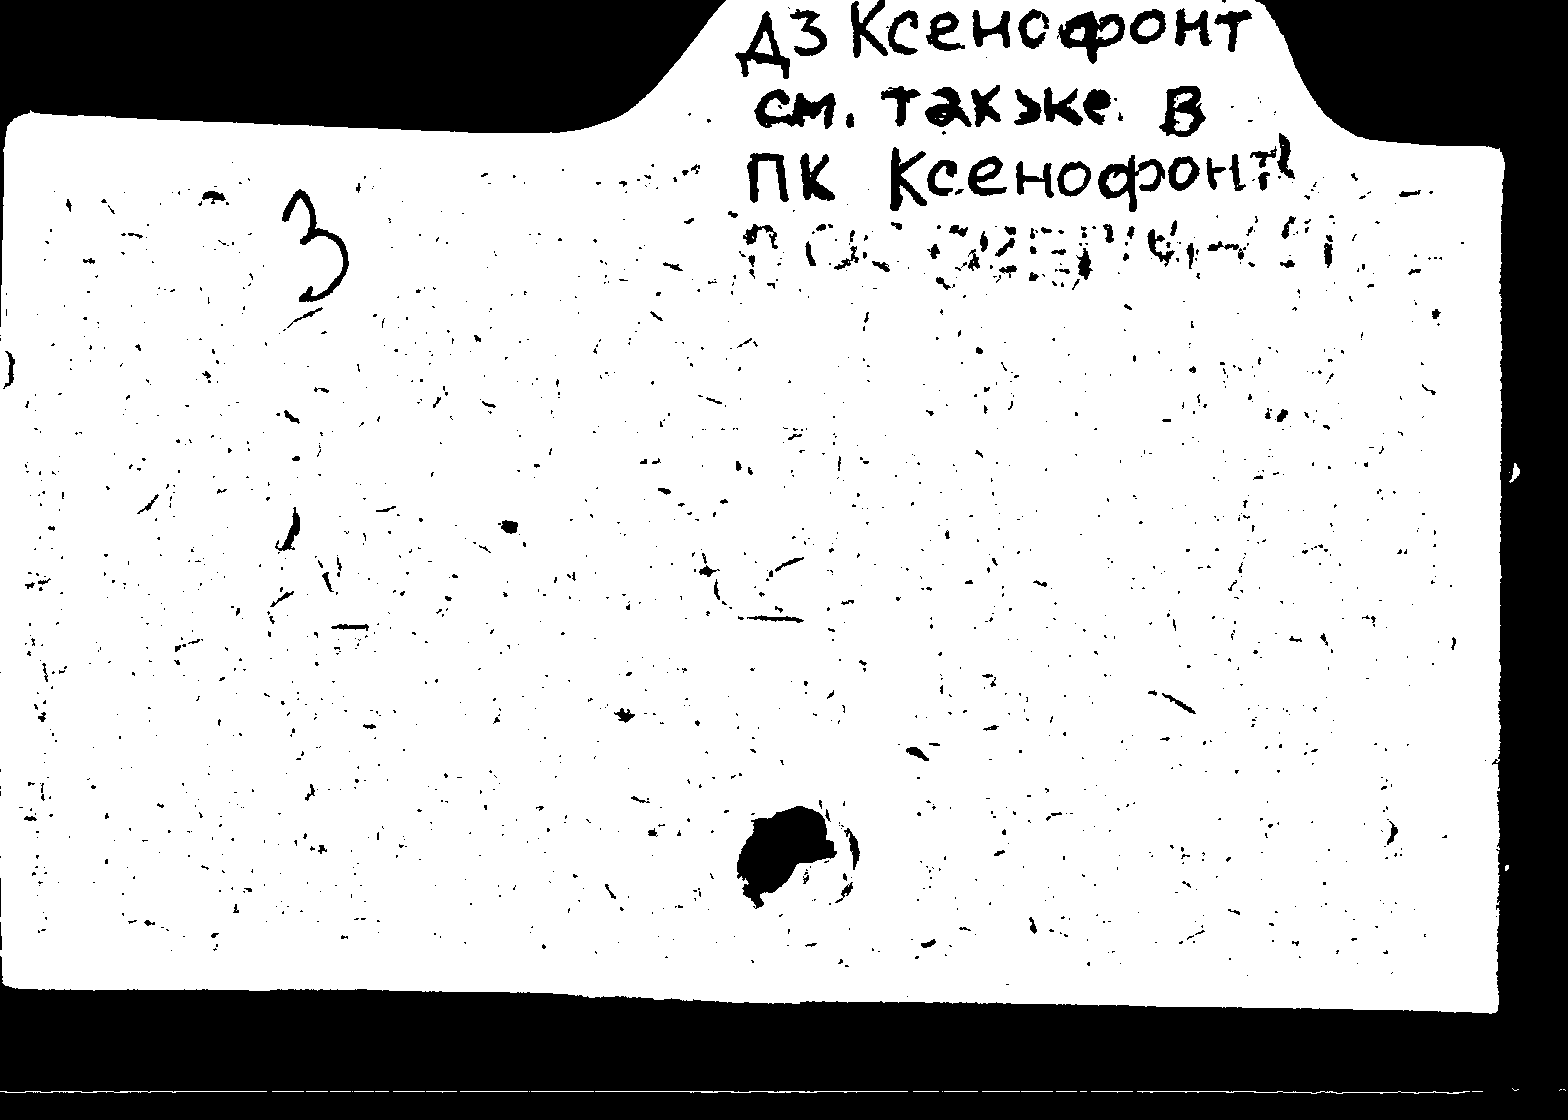 ДЗ Ксенофонт
см. также в
ПК Ксенофонт
3